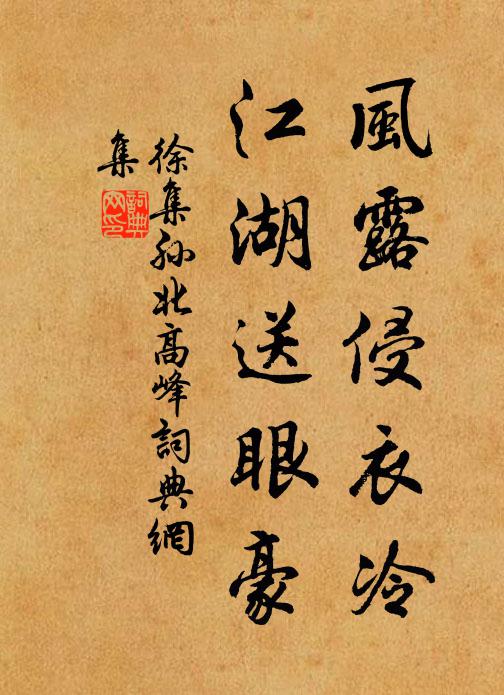 風露侵衣冷
江湖送眼豪
徐集孙北高峰詞典網
集
詞典
网印